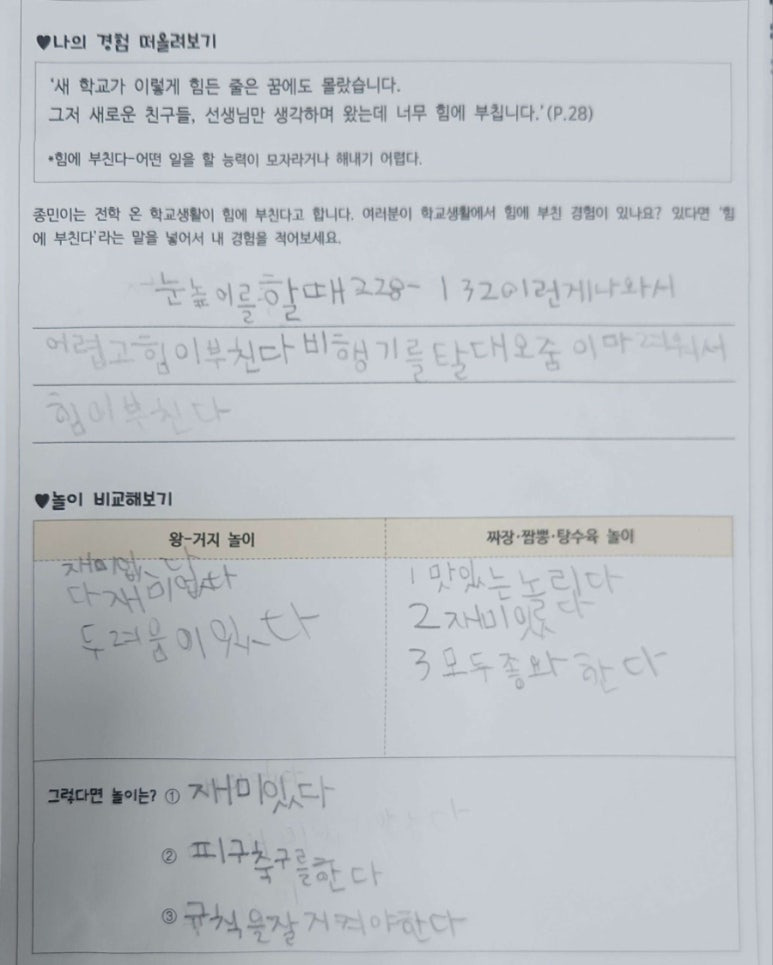 ♥나의 경험 떠올려보기
‘새 학교가 이렇게 힘든 줄은 꿈에도 몰랐습니다.
그저 새로운 친구들, 선생님만 생각하며 왔는데 너무 힘에 부칩니다.’(P.28)
*힘에 부친다-어떤 일을 할 능력이 모자라거나 해내기 어렵다.
종민이는 전학 온 학교생활이 힘에 부친다고 합니다. 여러분이 학교생활에서 힘에 부친 경험이 있나요? 있다면 ‘힘
에 부친다’라는 말을 넣어서 내 경험을 적어보세요.
눈높이를 할때 228- 132이런게나와서
어렵고힘이부친다 비행기를탈대오줌이마려워서
힘이부친다
♥놀이 비교해보기
왕-거지 놀이 짜장·짬뽕·탕수육 놀이
재미없다
다재미없다
두려움이있다
1 맛있는놀리다
2재미있다
3모두종와한다
그렇다면 놀이는? ① 재미있다
② 피구축구를한다
③ 규칙을잘지켜야한다